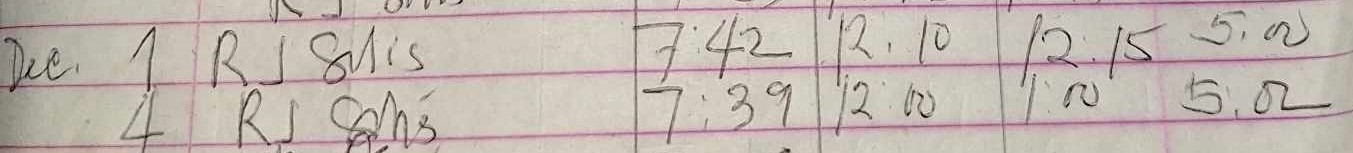 Dec. 1 RJ Solis 7:42 12.10 12.15 5.00
4 RJ Solis 7:39 12:00 1:00 5.02